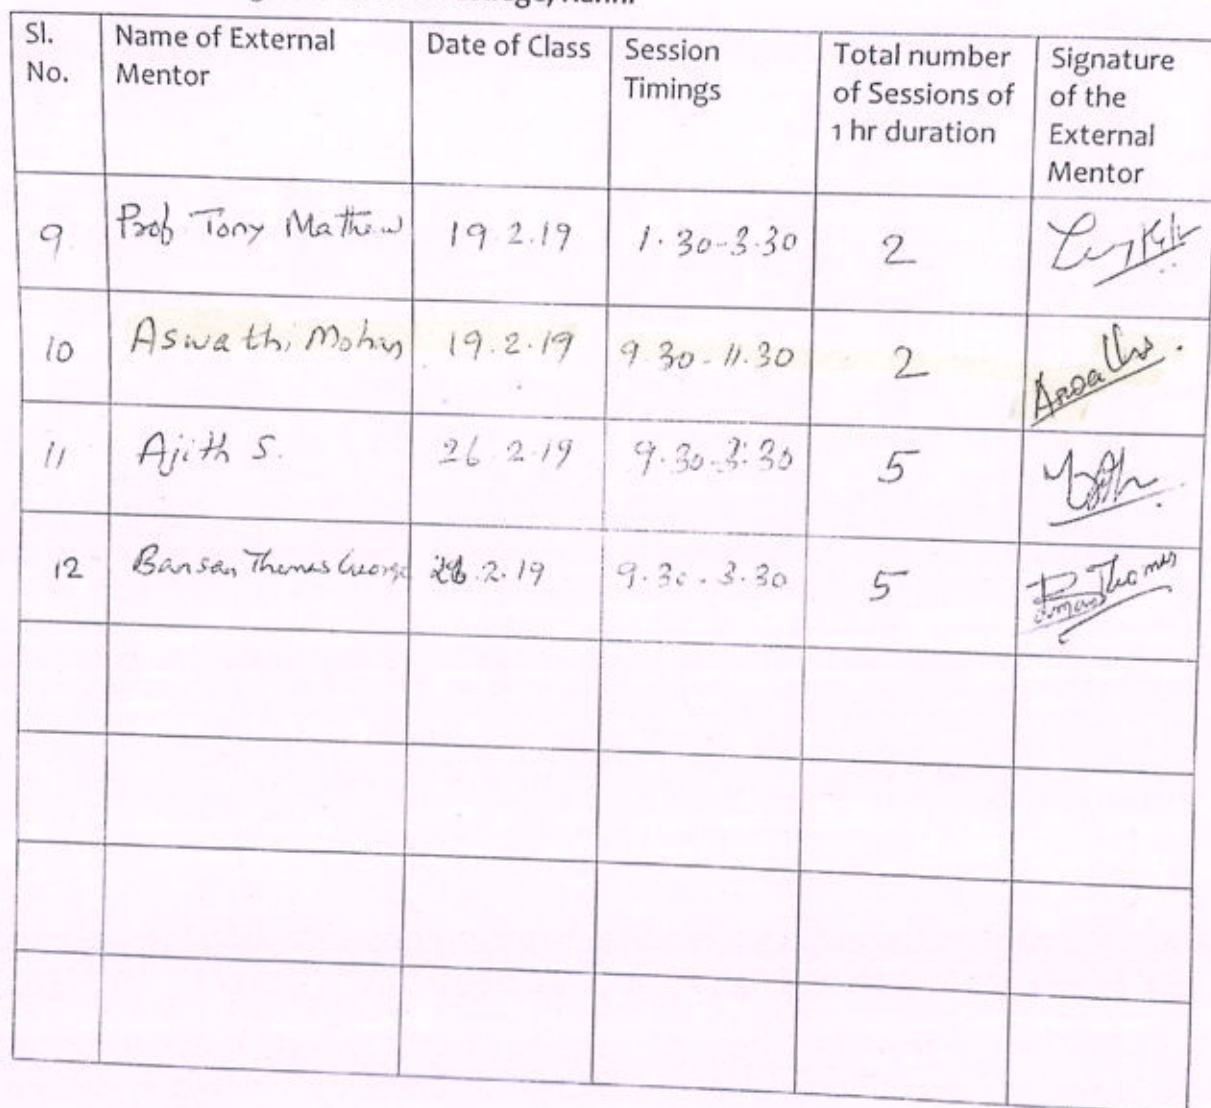 Sl. No. | Name of External Mentor | Date of Class | Session Timings | Total number of Sessions of 1 hr duration | Signature of the External Mentor
9 | Prof Tony Mathew | 19.2.19 | 1.30-3.30 | 2
10 | Aswathi Mohan | 19.2.19 | 9.30-11.30 | 2
11 | Ajith S. | 26.2.19 | 9.30-3.30 | 5
12 | Thomas George | 2.19 | 9.30-3.30 | 5 | Thomas